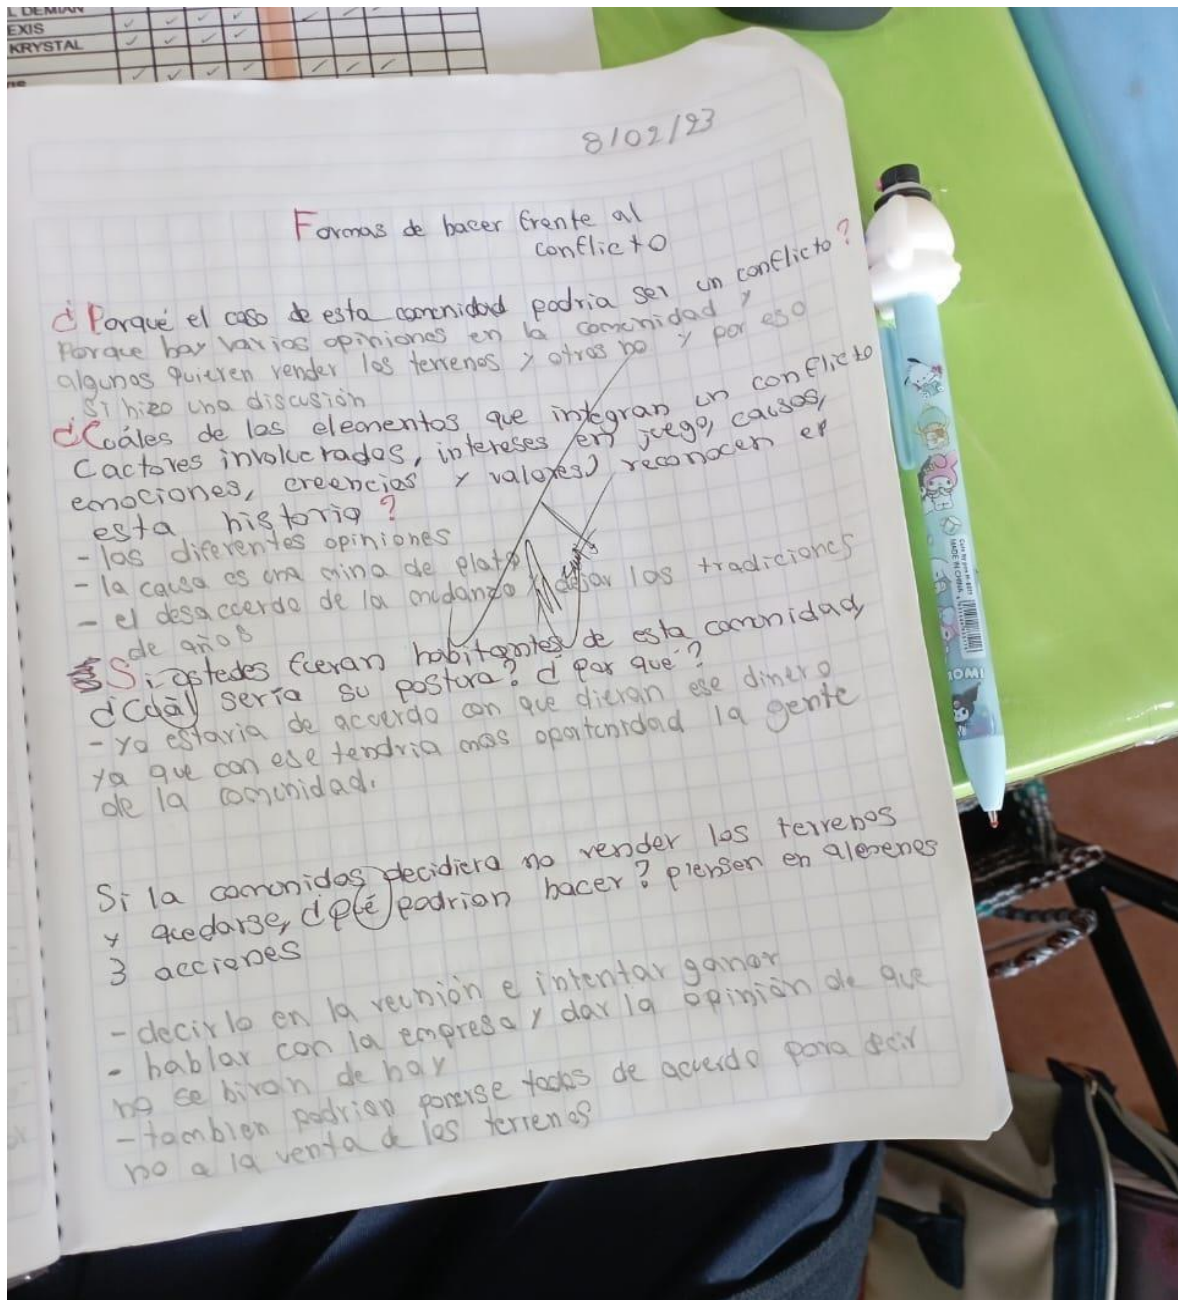 EXIS
KRYSTAL
8/02/23
Formas de hacer frente al
conflicto
¿Porqué el caso de esta comunidad podria ser un conflicto?
Porque hay varios opiniones en la comunidad y
algunos quieren vender los terrenos y otros no y por eso
si hizo una discusión
¿Cuáles de los elementos que integran un conflicto
Cactores involucrados, intereses en juego, causas,
emociones, creencias y valores) reconocen en
esta historia?
- las diferentes opiniones
- la causa es una mina de plata
- el desacuerdo de la mudanza y dejar las tradiciones
de años
Si ustedes fueran habitantes de esta comunidad,
¿Cuál sería su postura? ¿Por qué?
- Yo estaria de acuerdo con que dieran ese dinero
ya que con ese tendria mas oportunidad la gente
de la comunidad.
Si la comunidas decidiera no vender los terrenos
y quedarse, ¿qué podrian hacer? piensen en alemenes
3 acciones
- decirlo en la reunión e intentar ganar
- hablar con la empresa y dar la opinión de que
no se hiran de hay
- tambien podrian ponerse todos de acuerdo para decir
no a la venta de los terrenos
MADE IN CHINA